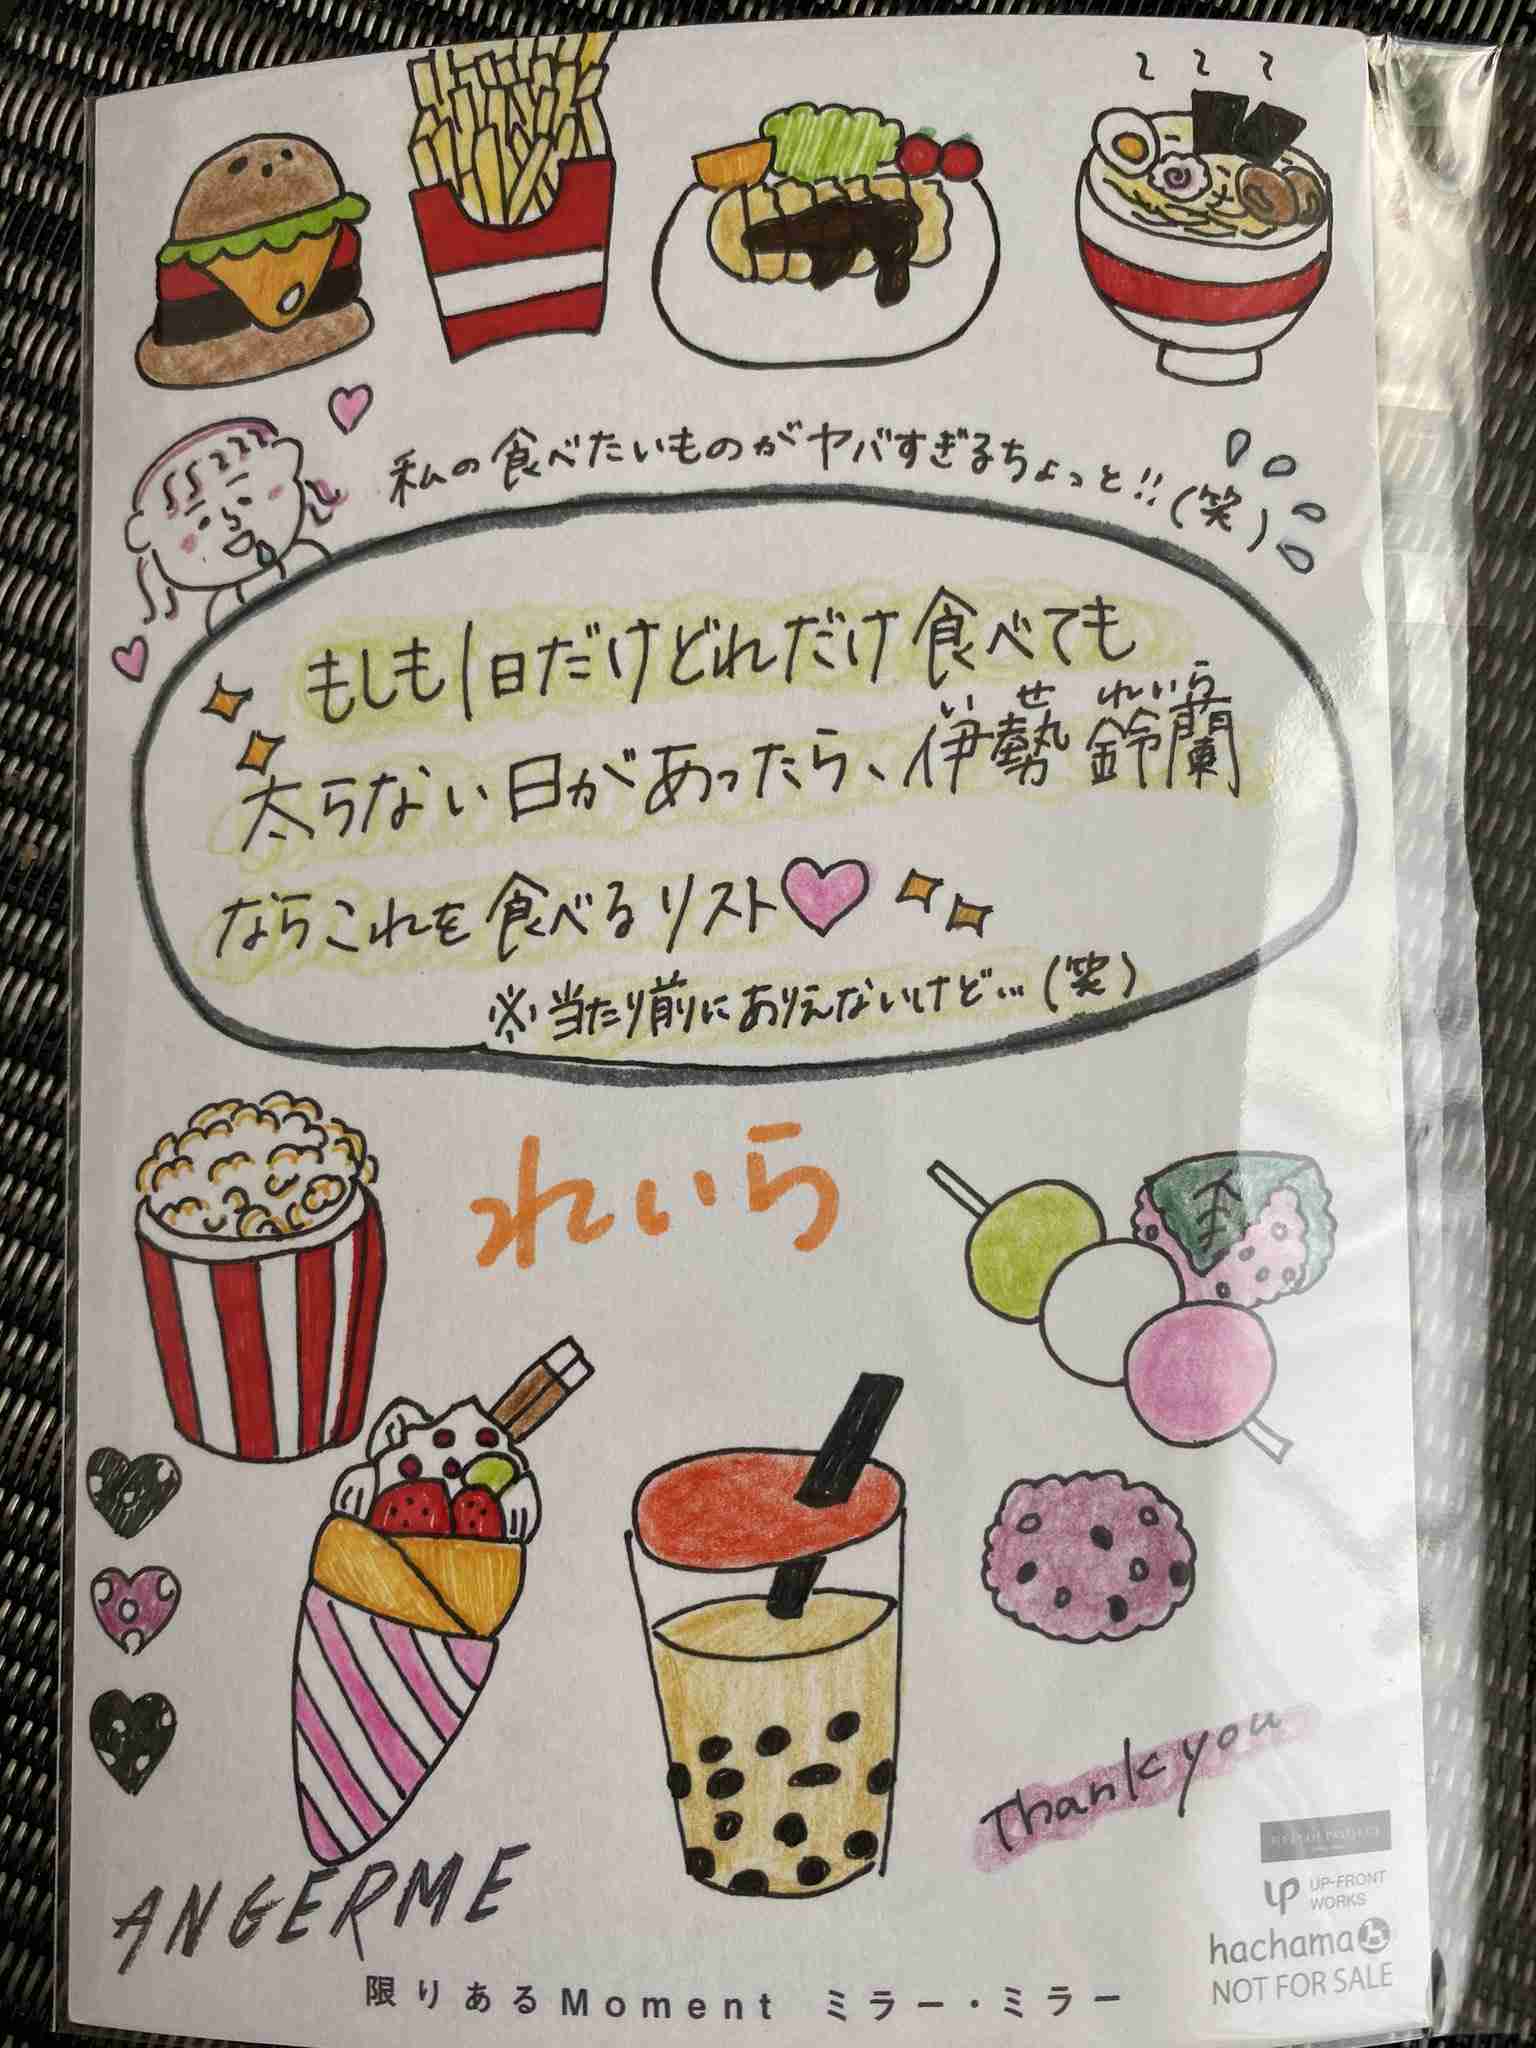 私の食べたいものがヤバすぎるちょっと!!(笑)
もしも1日だけどれだけ食べても
いせ れいら
太らない日があったら、伊勢鈴蘭
ならこれを食べるリスト
※当たり前にありえないけど…(笑)
れいら
Thank you
UP-FRONT
WORKS
hachama
NOT FOR SALE
ANGERME
限りあるMoment ミラー・ミラー